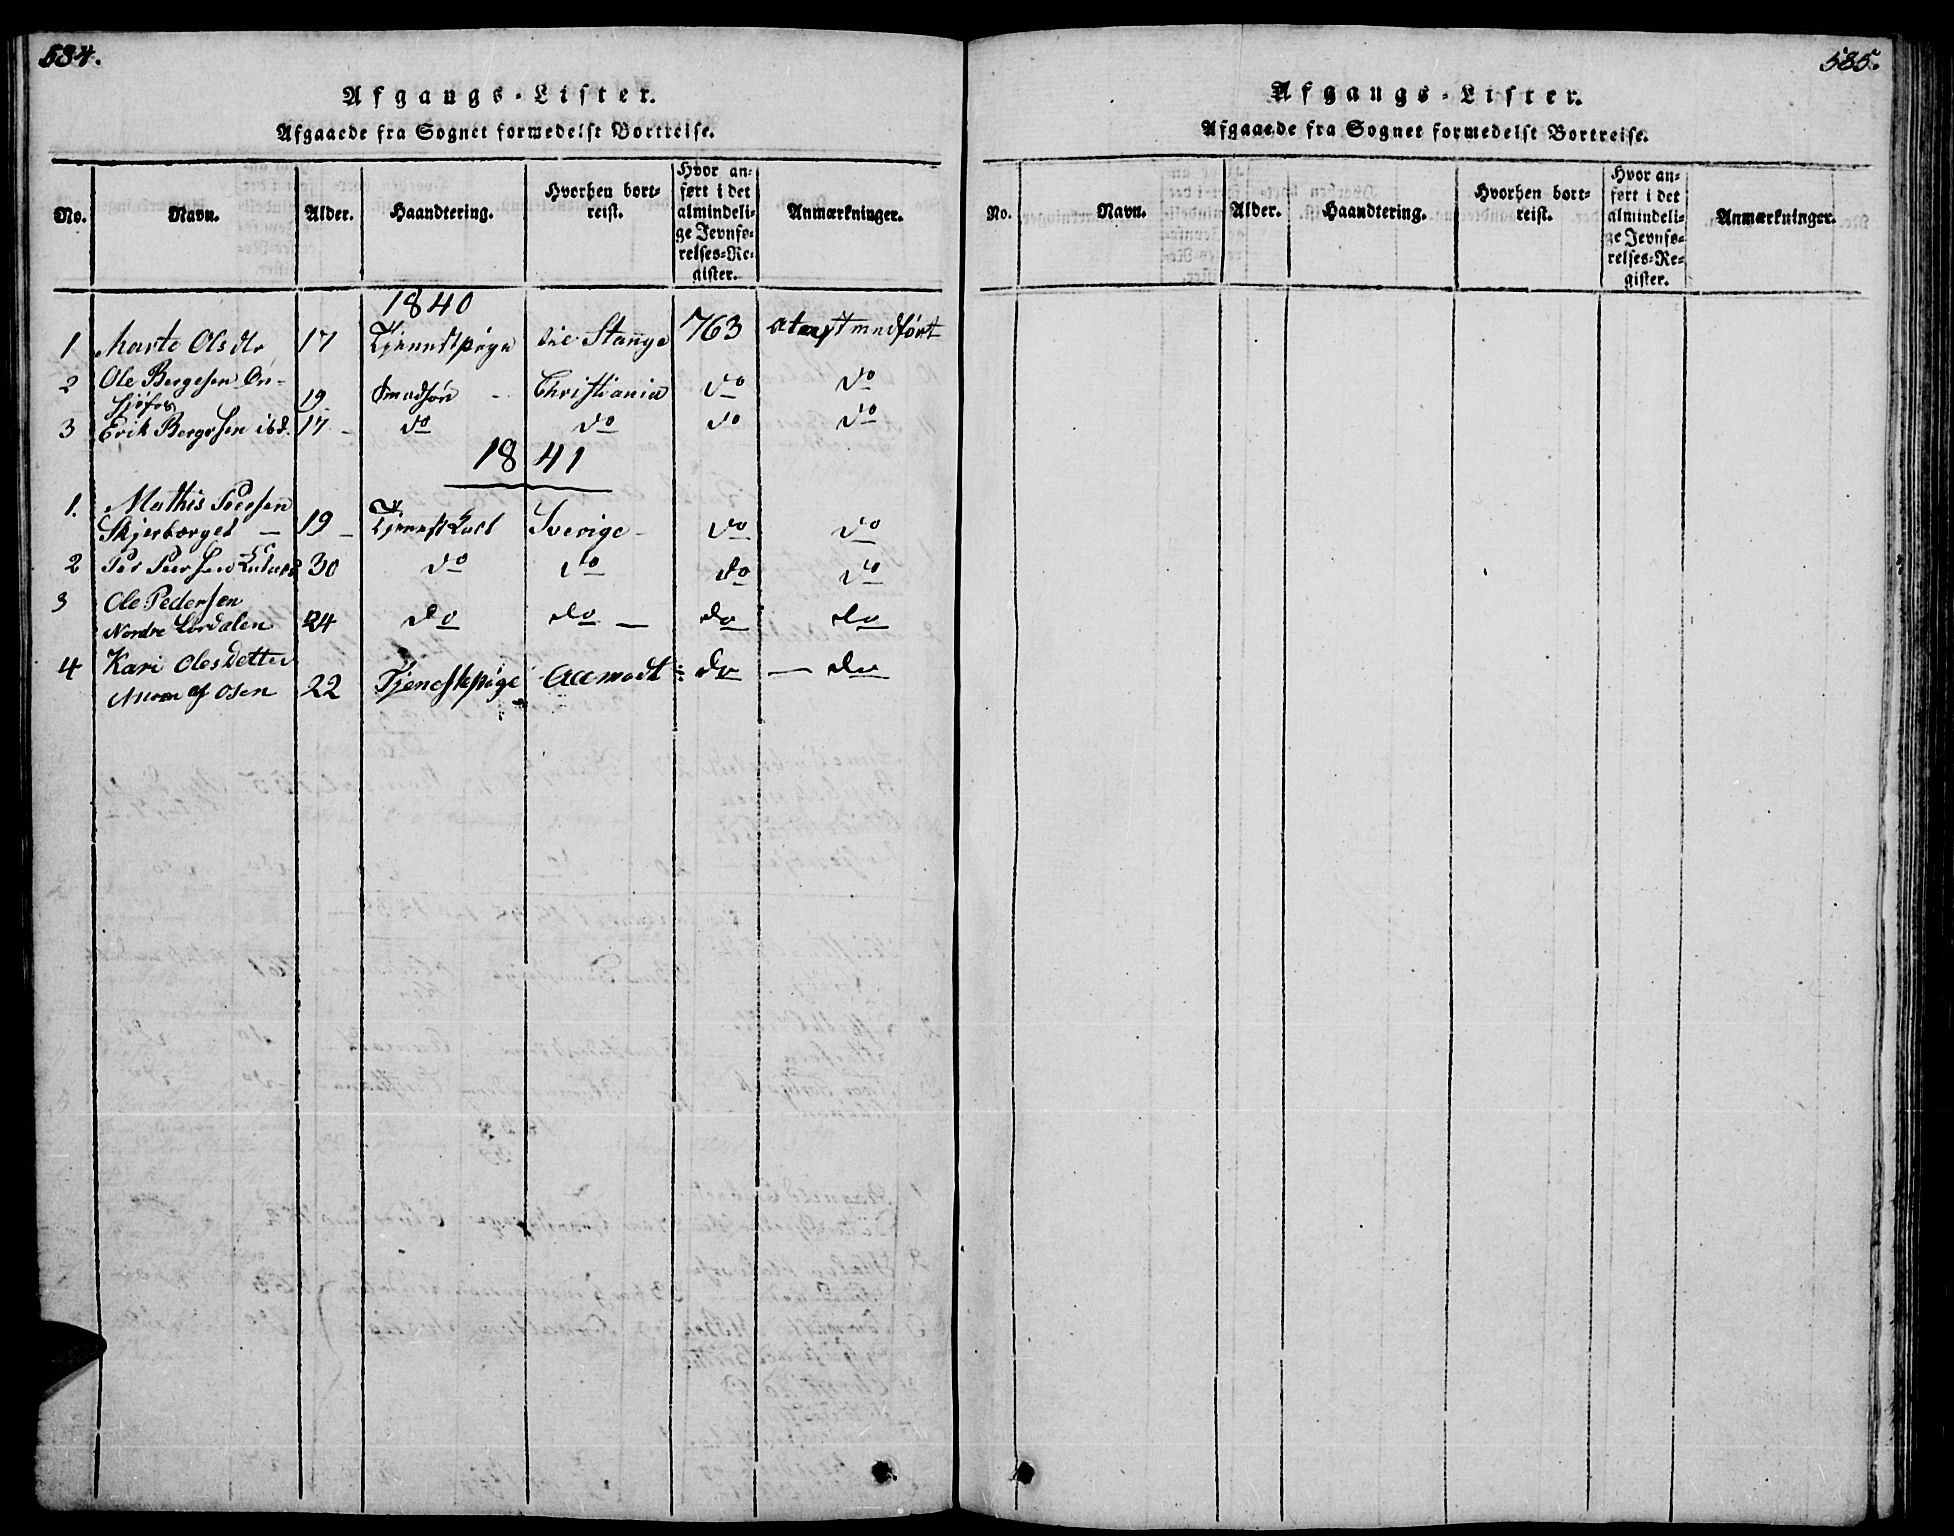 584.
Afgangs-Lister.
Afgaaede fra Sognet formedelst Bortreise.
No. Navn. Alder. Haandtering. Hvorhen bortreist. Hvor anført i det almindelige Jevnførelses-Register. Anmærkninger.
1840
1 Marte Olsdtr 17 Tjenestpige til Stange 763 Attest medført
2 Ole Bergesen
19 Christiania do do
3 Erik Bergesen ibd. 17 - do do do do
1841
1. Mathis Peersen
Skjerberget - 19 - Tjenestkarl Sverige - do do
2 Per Peersen 30 do do do do
3 Ole Pedersen
Nordre Lørdalen 24 do do - do do
4 Kari Olesdetter
af Osen 22 Tjenestepige Aamodt do - do
585.
Afgangs-Lister.
Afgaaede fra Sognet formedelst Bortreise.
No. Navn. Alder. Haandtering. Hvorhen bortreist. Hvor anført i det almindelige Jevnførelses-Register. Anmærkninger.